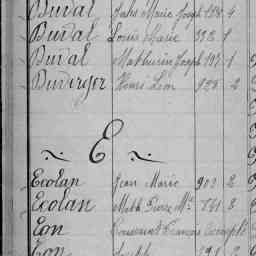 Buval Jules Marie Joseph 4
Buval Louis Marie 332 1
Buval Mathurin Joseph 1
Buverger Henri Léon 928 2
E
Ecolan Jean Marie 902 2
Ecolan Math Pierre Me 741 8
Eon Toussaint François
Eon Joseph 2